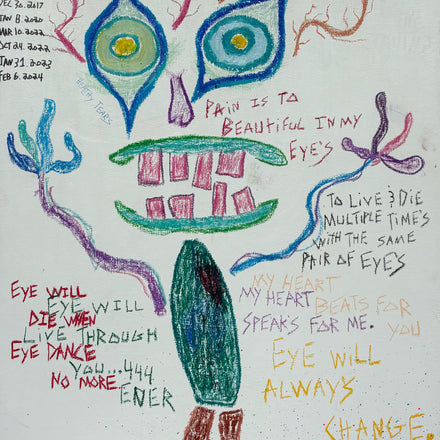 30. 2017
JAN 8. 2020
MAR 10. 2022
OCT 24. 2022
JAN 31. 2023
FEB 6. 2024
TEARS
PAIN IS TO
BEAUTIFUL IN MY
EYE'S
TO LIVE & DIE
MULTIPLE TIME'S
WITH THE SAME
PAIR OF EYE'S
EYE WILL
DIE WHEN
EYE DANCE
NO MORE
EYE WILL
LIVE THROUGH
YOU...444
EVER
MY HEART
BEATS FOR
YOU
MY HEART
SPEAKS FOR ME.
EYE WILL
ALWAYS
CHANGE.